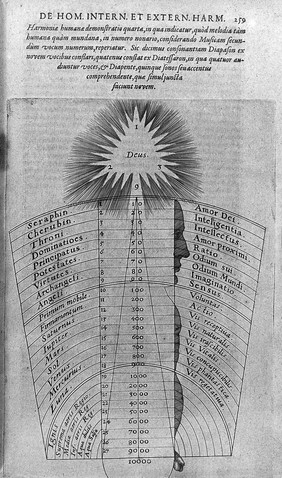 DE HOM. INTERN. ET EXTERN. HARM. 259
Harmoniæ humanæ demonstratio quarta, in qua indicatur, quòd melodia tàm
humana quàm mundana, in numero nonario, considerando Musicam secun-
dùm vocum numerum, reperiatur. Sic dicimus consonantiam Diapason ex
novem vocibus constare, quatenus constat ex Diatessaron, in qua quatuor au-
diuntur voces, & Diapente, quinque sonos seu accentus
comprehendente, quæ simul juncta
faciunt novem.
1
Deus.
2 3
9
Seraphin 1 10 Amor Dei
Cherubin. 2 20 Intelligentia
Throni 3 30 Intellectus.
Dominationes 4 40 Amor proximi.
Principatus 5 50 Ratio
Potestates 6 60 Odium sui.
Virtutes 7 70 Odium Mundi
Archangeli 8 80 Imaginatio
Angeli 9 90 Sensus
Primum mobile 10 100 Voluntas
Firmamentum 200 Actio
Saturnus 300 Vis receptiva
Jupiter 400 Vis naturalis
Mars 500 Vis irascibilis
Sol 600 Vis Vitalis
Venus 700 Vis concupiscibilis
Mercurius 800 Vis phantastica
Luna 900
Ignis
10000